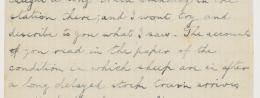 station there, and I wont try and
describe to you what I saw. The accounts
you read in the paper of the
condition in which sheep are in after
a long delayed stock train arrives